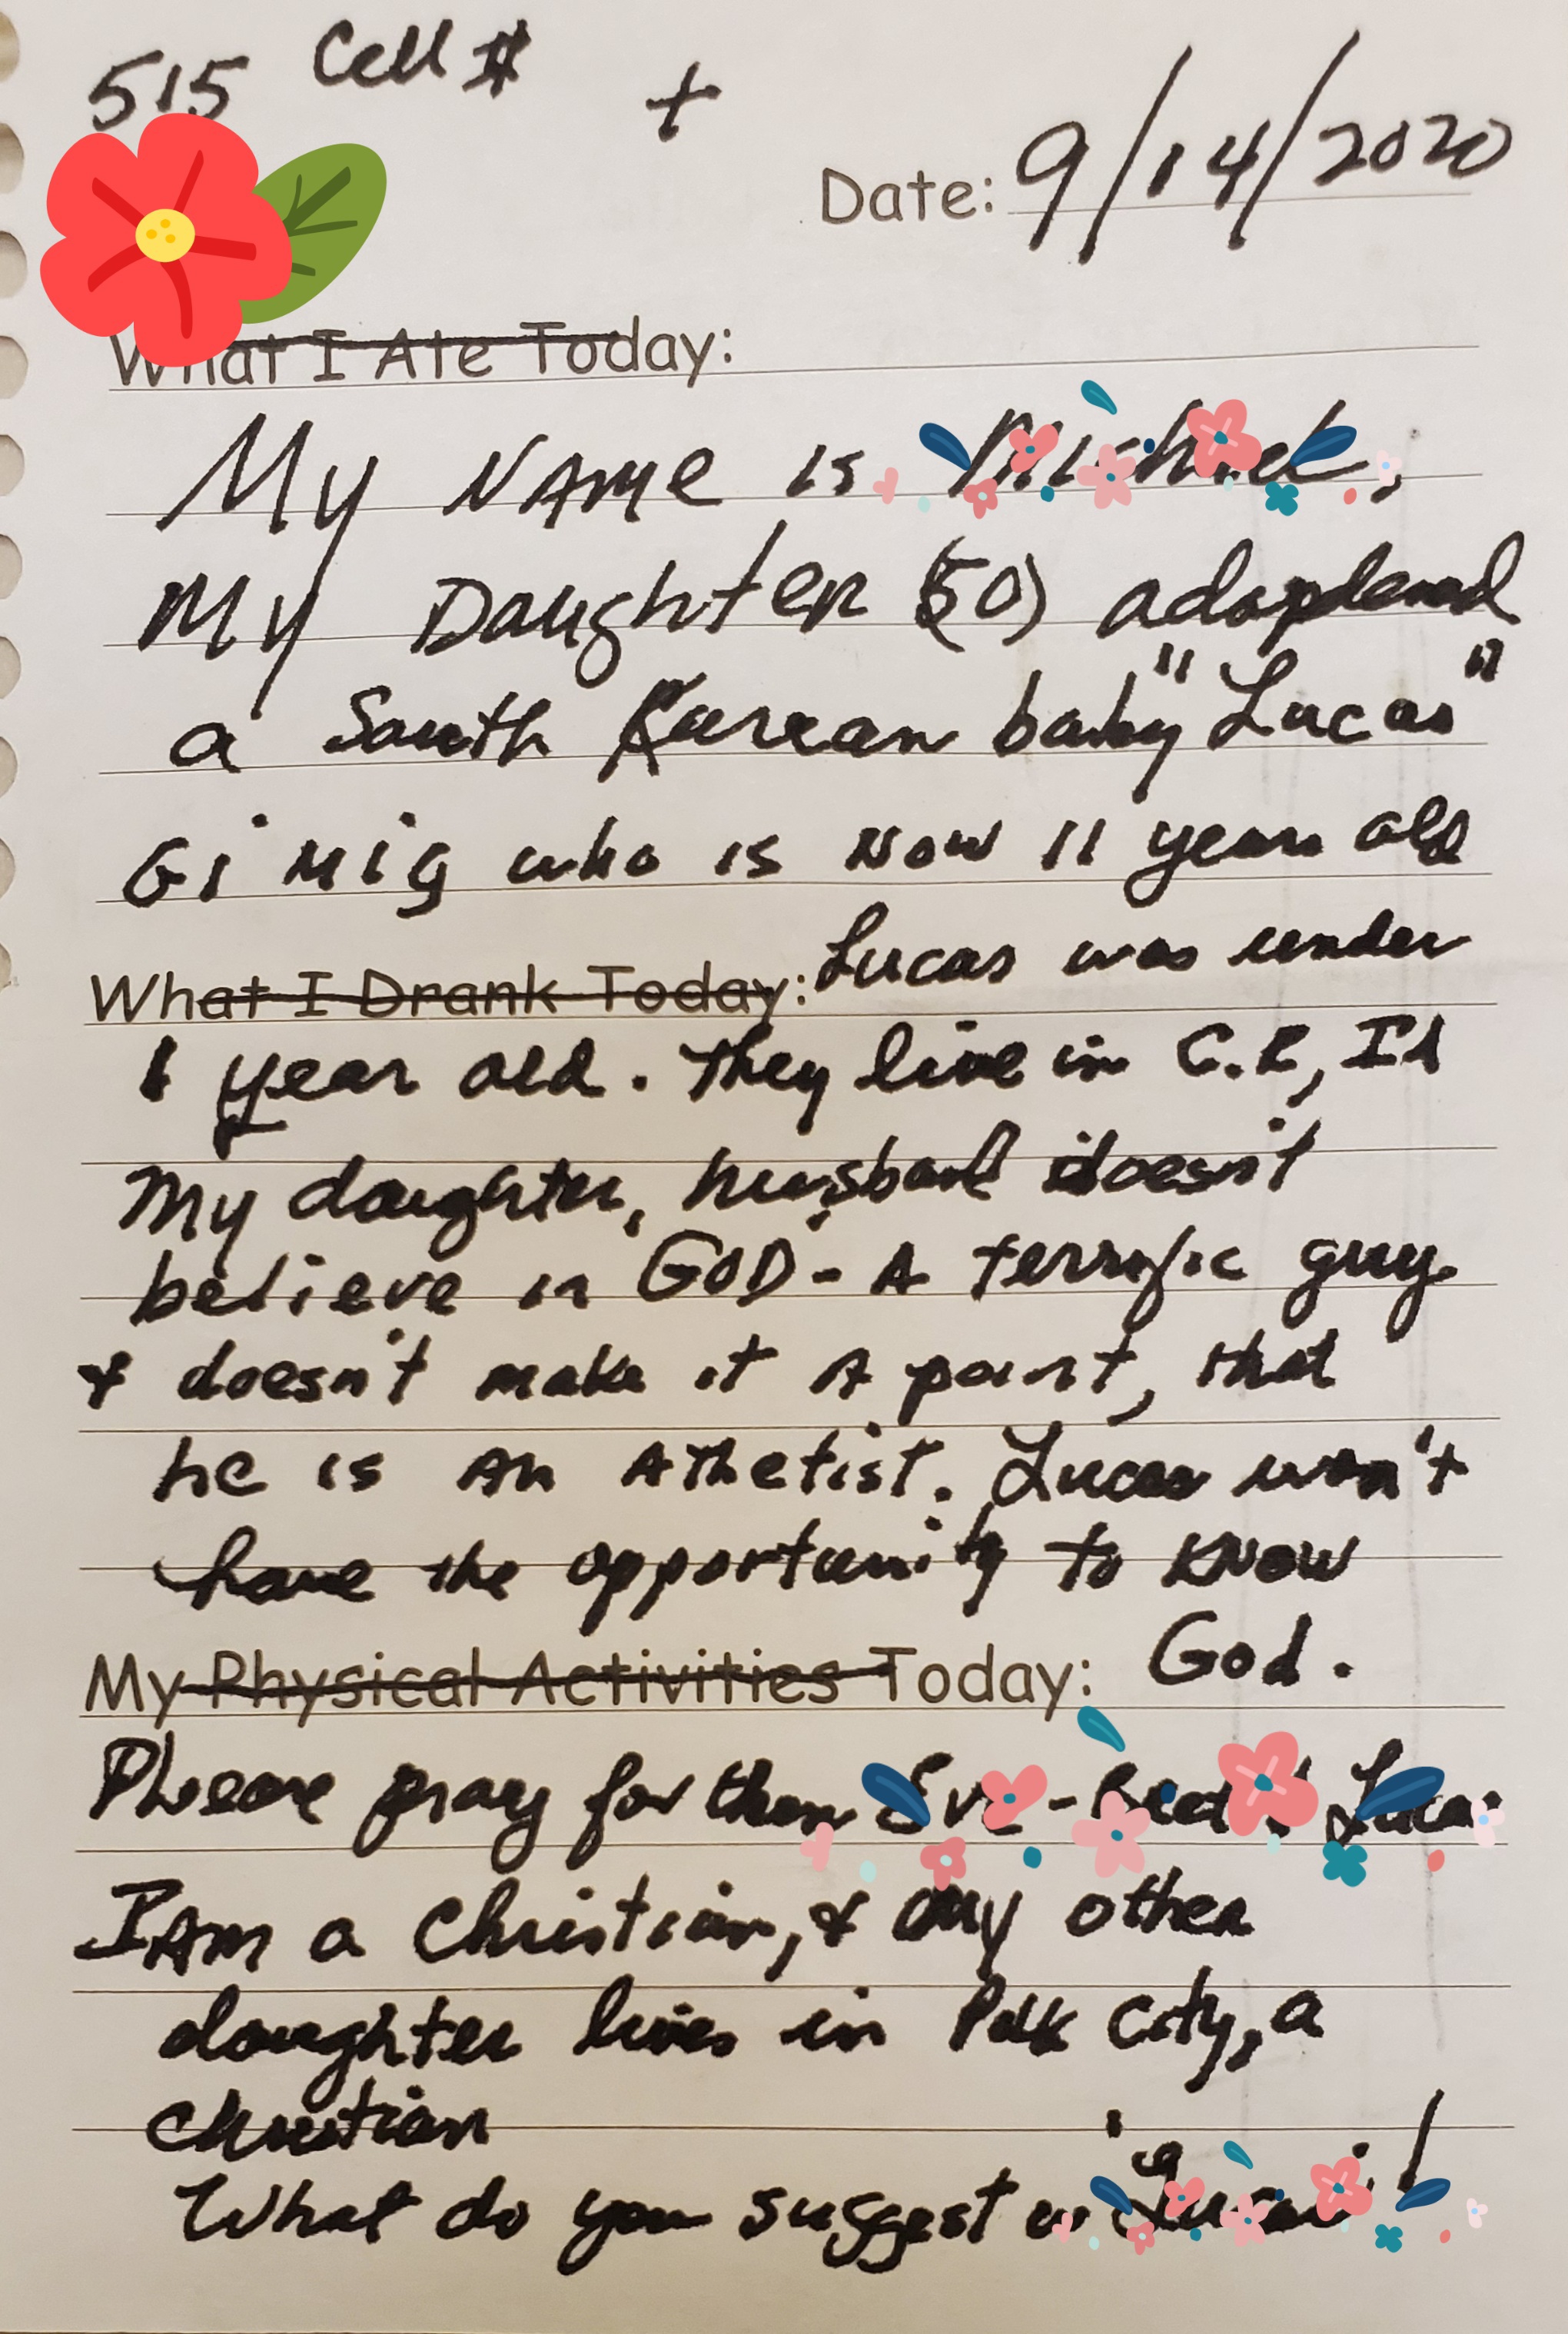 515 Cell #
+
Date: 9/14/2020
What I Ate Today:
My NAMe is
My Daughter (50)
a South Korean baby "Lucas"
Gi Mig who is Now 11 years old
What I Drank Today: Lucas was under
1 year old. They live in C.R, IA
My daughter, husband doesn't
believe in GOD - A terrific guy
& doesn't make it A point, that
he is An AThetist. Lucas won't
have the opportunity to KNOW
My Physical Activities Today: God.
Please pray for them
I Am a Christian, & my other
daughter lives in Polk City, a
Christian
What do you suggest